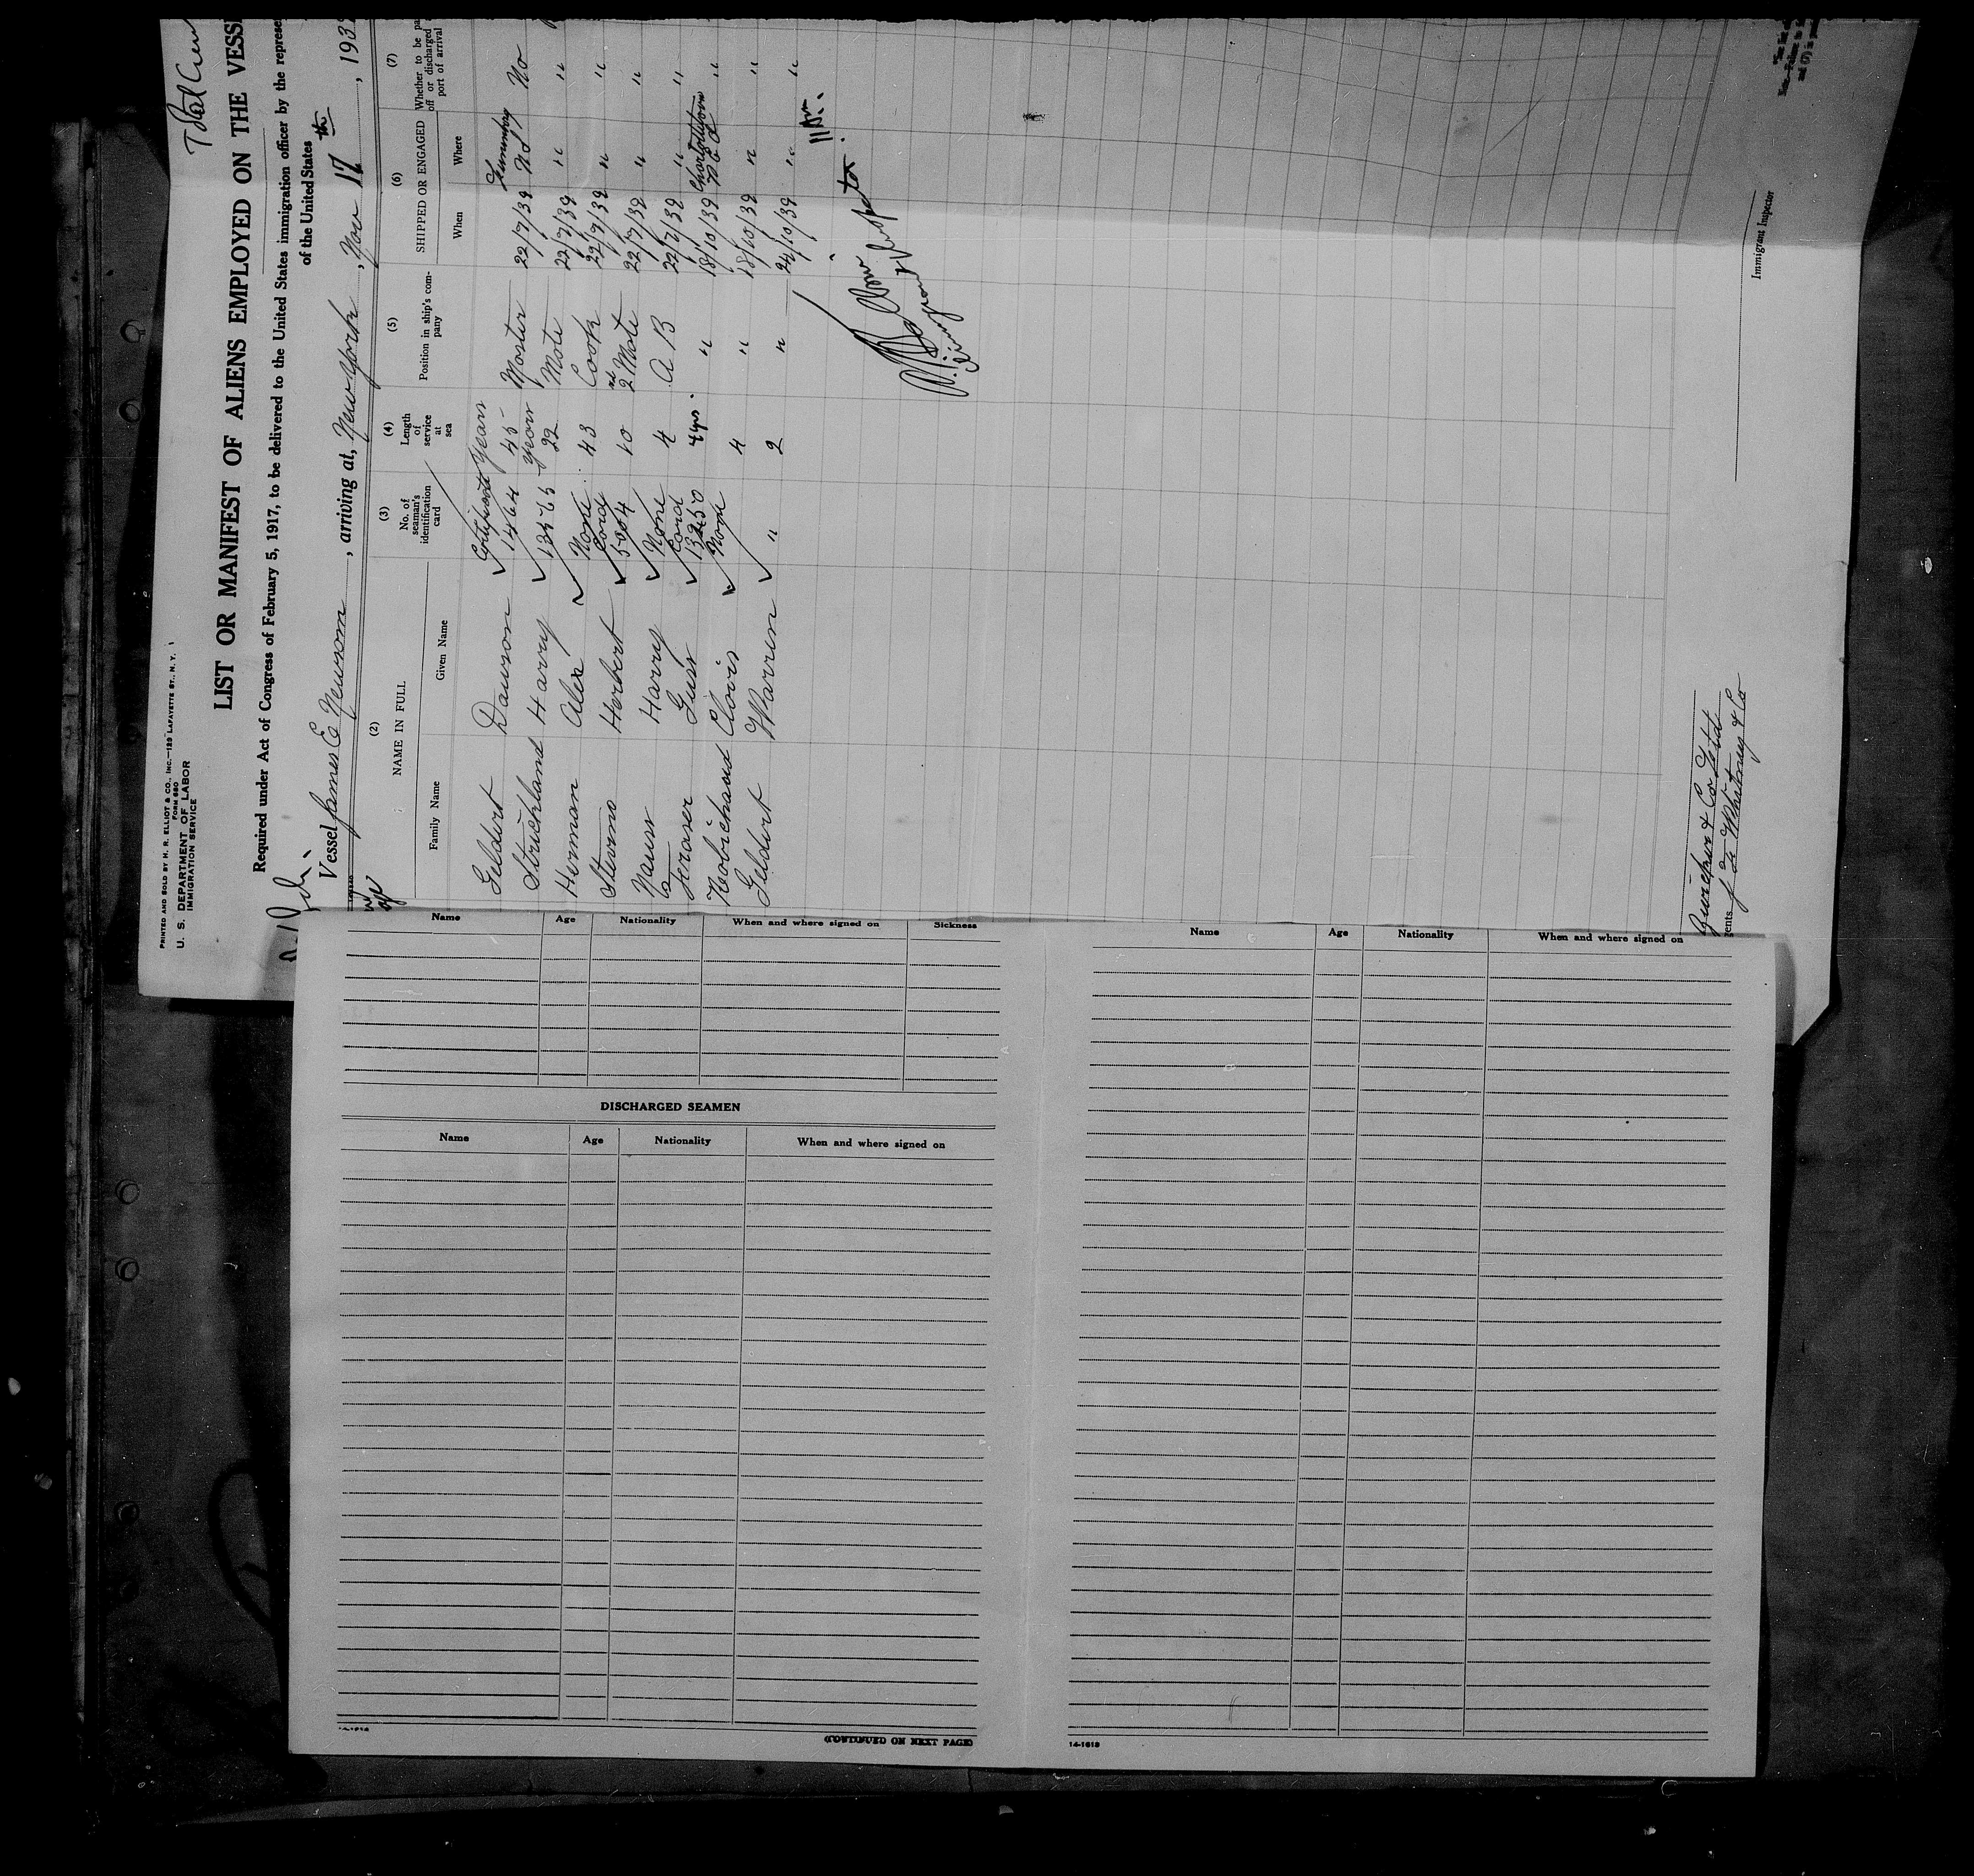 PRINTED AND SOLD BY H. R. ELLIOT & CO., INC.—129 LAFAYETTE ST., N. Y.
FORM 680
U. S. DEPARTMENT OF LABOR
IMMIGRATION SERVICE
Total Crew
LIST OR MANIFEST OF ALIENS EMPLOYED ON THE VESS
Required under Act of Congress of February 5, 1917, to be delivered to the United States immigration officer by the represe
of the United States
Vessel James E Newsom, arriving at, New York, Nov 17th, 193
(2) (3) (4) (5) (6) (7)
NAME IN FULL
Family Name Given Name
No. of seaman's identification card
Length of service at sea
Position in ship's company
SHIPPED OR ENGAGED
When Where
Whether to be pa
off or discharged
port of arrival
Certificate Years
Geldert Dawson 1464 45 Master 22/7/39 NS No
years
Strickland Harry 13565 22 Mate 22/7/39 " "
Herman Alex None 43 Cook 22/7/39 " "
Stevens Herbert Card 5004 10 2nd Mate 22/7/39 " "
Naus Harry None 4 A B 22/7/39 " "
Fraser Guss Card 13250 4 yrs. " 18/10/39 Charlottetown P E I "
Robichaud Clovis None 4 " 18/10/39 " "
Geldert Warren " 2 " 24/10/39 " "
11 Am.
Immigrant Inspector
gents
& Co Ltd
J F Whitney & Co
Name Age Nationality When and where signed on Sickness
DISCHARGED SEAMEN
Name Age Nationality When and where signed on
(CONTINUED ON NEXT PAGE)
Name Age Nationality When and where signed on
14-1613